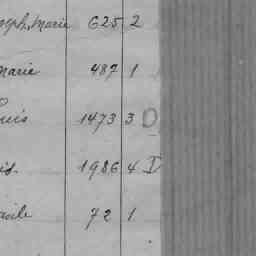 Joseph Marie 625 2
Marie 487 1
Louis 1473 3 D
1986 4 I
72 1